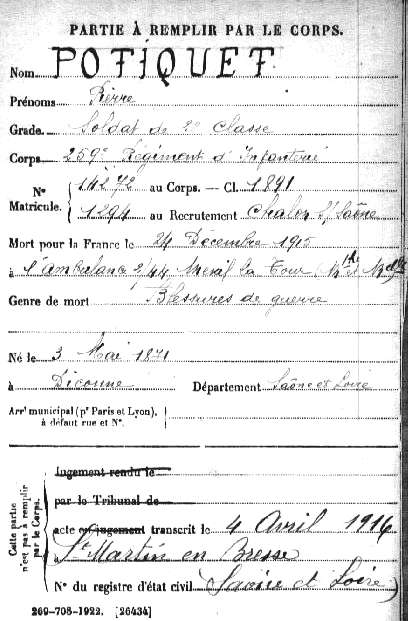 PARTIE À REMPLIR PAR LE CORPS.
Nom POTIQUET
Prénoms Pierre
Grade Soldat de 2e Classe
Corps 259e Régiment d'Infanterie
Nº Matricule. 14272 au Corps. — Cl. 1891
1294 au Recrutement Chalon S/ Saône
Mort pour la France le 24 Décembre 1915
à l'Ambulance 2/44 Mesnil la Tour (Mthe & Mlle)
Genre de mort Blessures de guerre
Né le 3 Mai 1871
à Diconne Département Saône et Loire
Arrt municipal (pr Paris et Lyon), à défaut rue et Nº.
Cette partie n'est pas à remplir par le Corps.
Jugement rendu le
par le Tribunal de
acte ou jugement transcrit le 4 Avril 1916
à St Martin en Bresse
Nº du registre d'état civil (Saône et Loire)
269-708-1922. [26434]